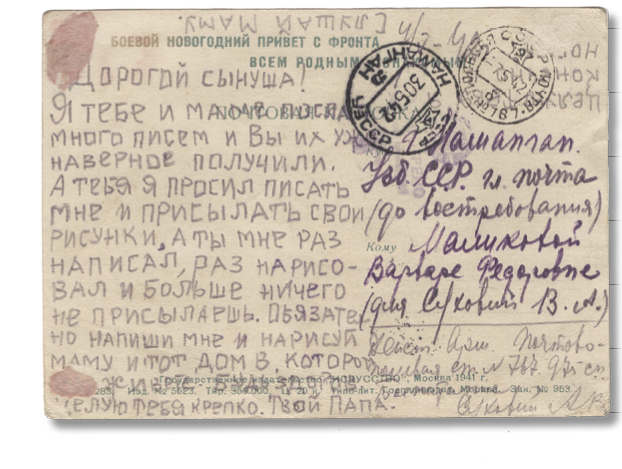 СЛУШАЙ МАМУ.
БОЕВОЙ НОВОГОДНИЙ ПРИВЕТ С ФРОНТА
ВСЕМ РОДНЫМ
ДОРОГОЙ СЫНУША!
Я ТЕБЕ И МАМЕ ПОСЛАЛ
МНОГО ПИСЕМ И ВЫ ИХ УЖ
НАВЕРНОЕ ПОЛУЧИЛИ.
А ТЕБЯ Я ПРОСИЛ ПИСАТЬ
МНЕ И ПРИСЫЛАТЬ СВОИ
РИСУНКИ, А ТЫ МНЕ РАЗ
НАПИСАЛ, РАЗ НАРИСО-
ВАЛ И БОЛЬШЕ НИЧЕГО
НЕ ПРИСЫЛАЕШЬ. ОБЯЗАТЕЛ
НО НАПИШИ МНЕ И НАРИСУЙ
МАМУ И ТОТ ДОМ В КОТОРО
ЦЕЛУЮ ТЕБЯ КРЕПКО. ТВОЙ ПАПА.
ПОЧТОВАЯ
НАМАНГАН
30 5 42
УЗБ. ССР
Узб. ССР. гл. почта
(до востребования)
Кому Маликовой
Варваре Федоровне
(для Суховий В. А.)
Действ. Арм. Почтово-
Государственное издательство „ИСКУССТВО", Москва 1941 г.
Изд. № 5523. Тир. Зак. № 953.
Суховий А